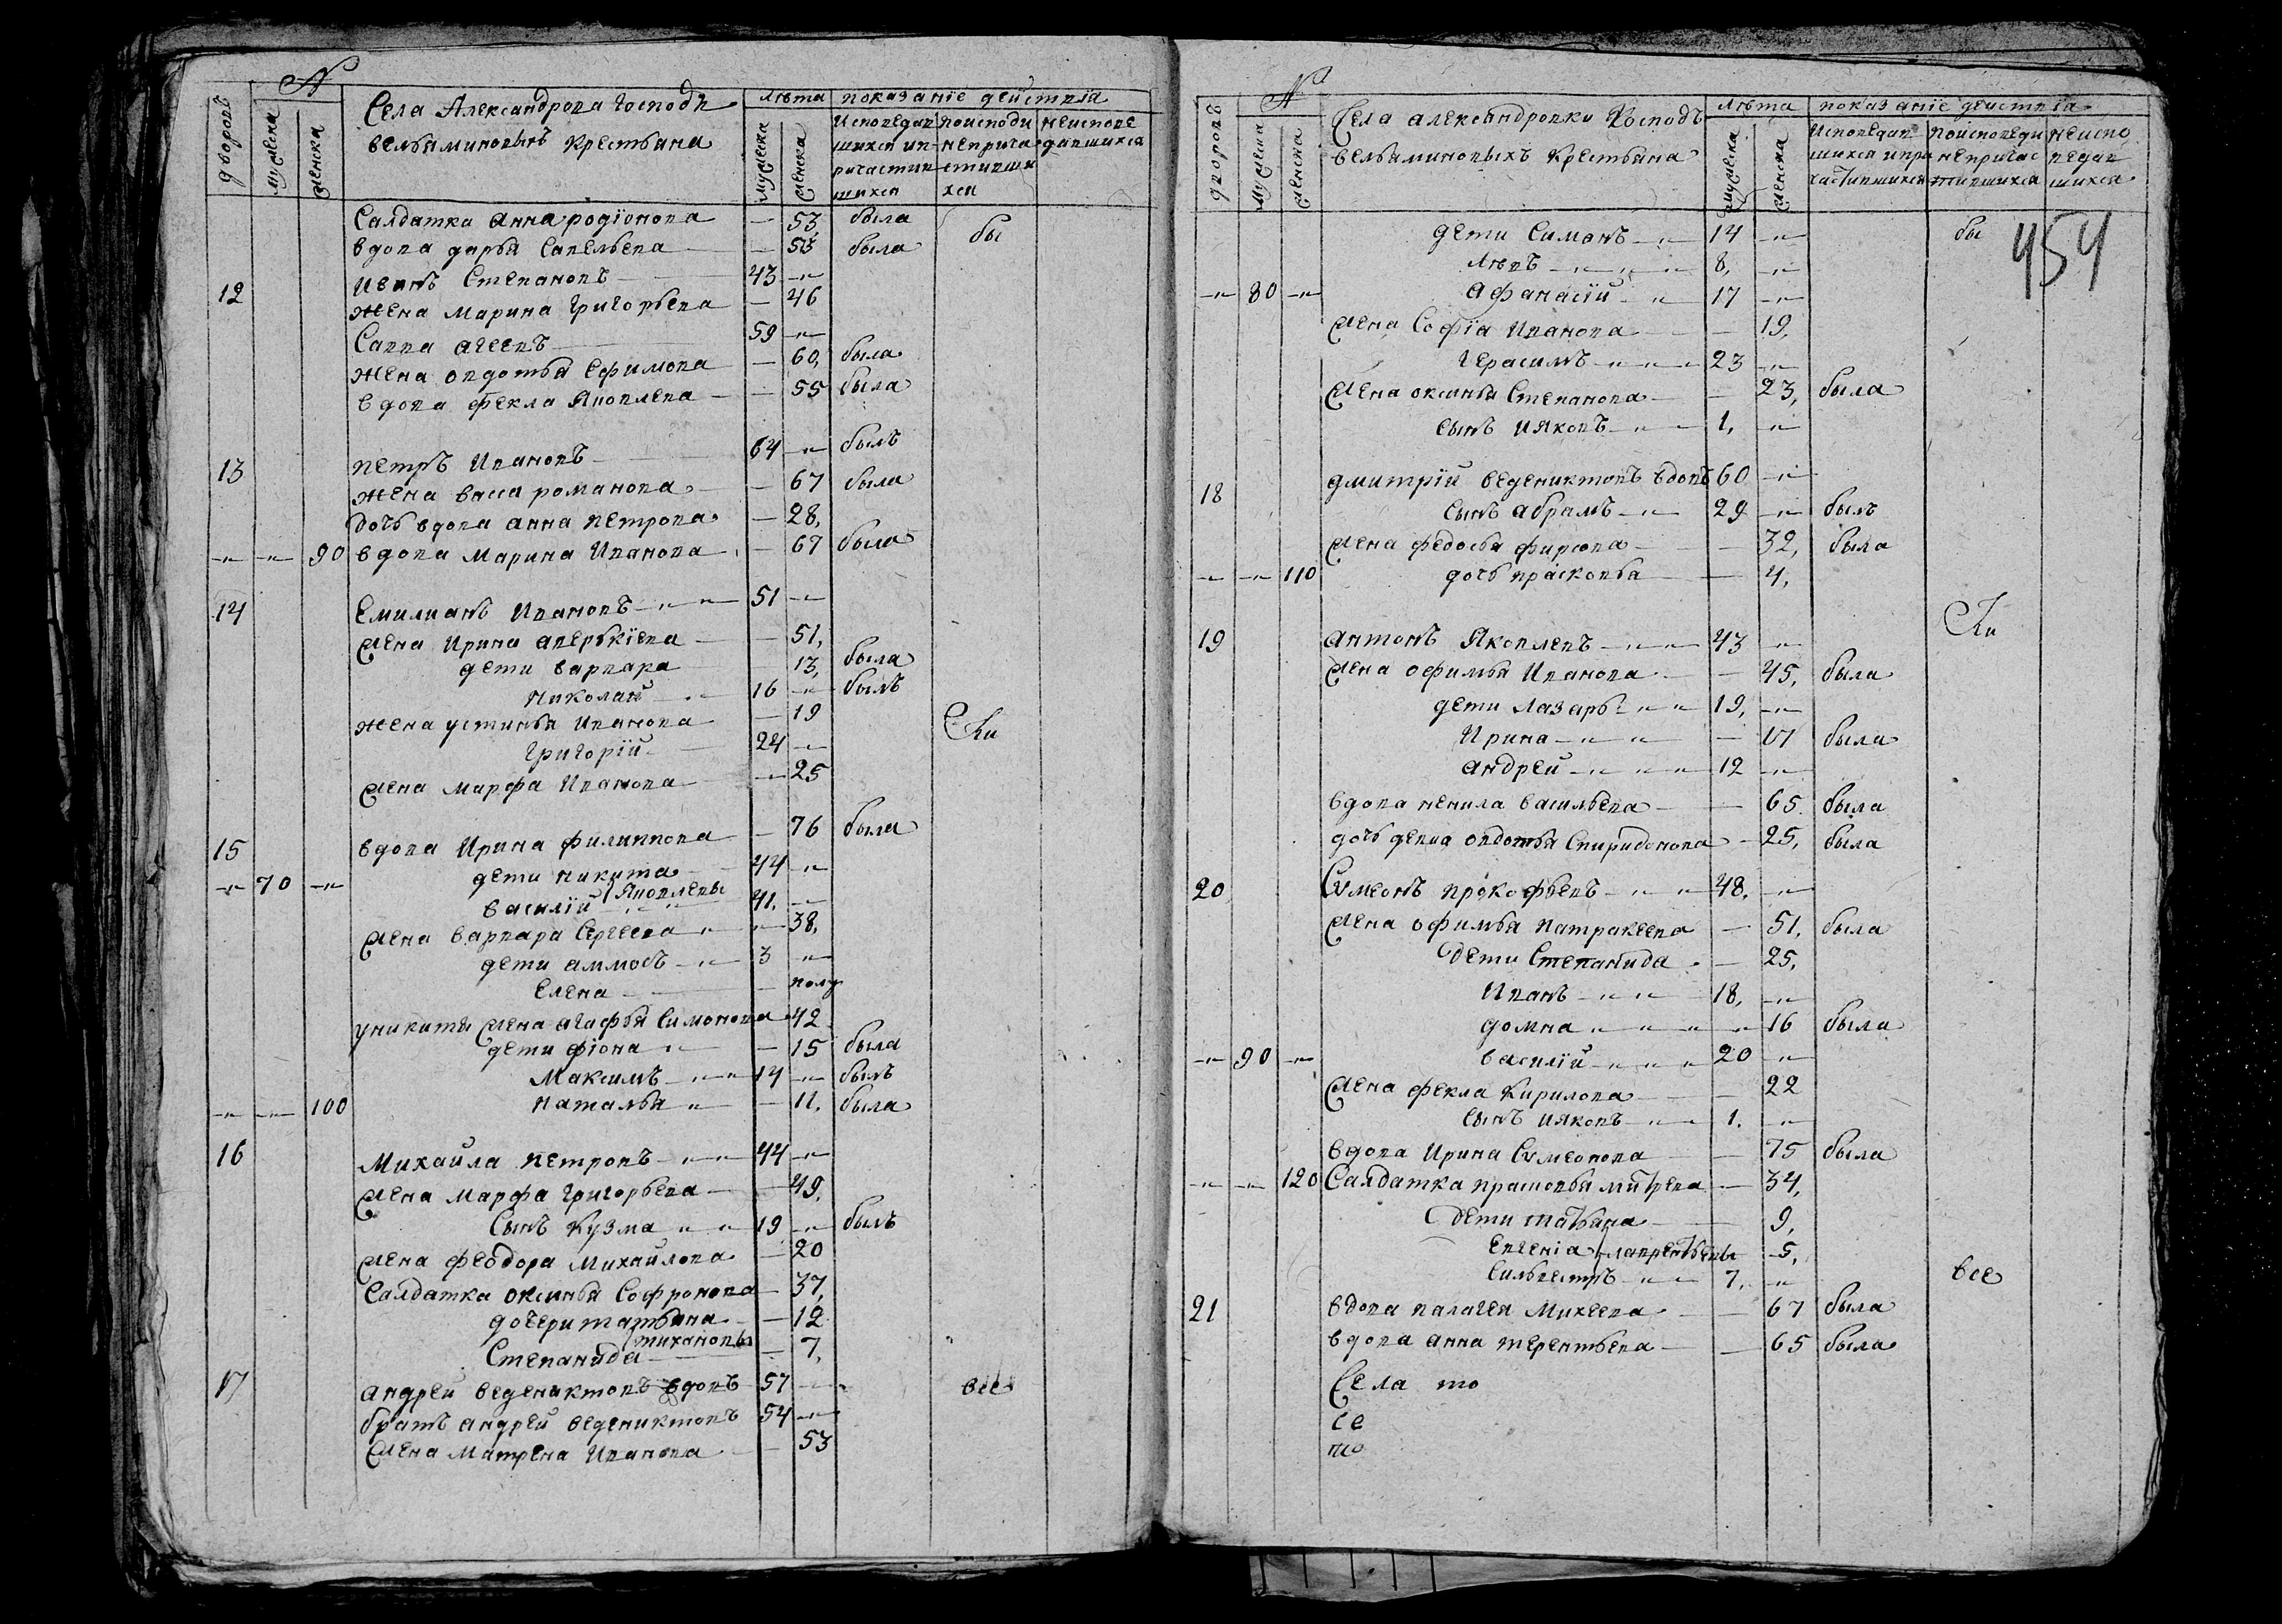 №
Села Александрова Господъ
вельяминовыхъ крестьяна
дворовъ
мужеска
женска
лѣта
мужеска
женска
показанїе действїа
Исповедав
шихся ип
ричастив
шихся
поисподи
неприча
стивши
хся
неиспове
давшихся
Салдатка Анна родїонова — 53, была
вдова дарья Савельева — 53 была бы
12 иванъ Степановъ 43 —
жена марина Григорьева — 46
Савва агеевъ 59 —
жена овдотья Ефимова — 60, была
вдова фекла Яковлева — 55 была
13 петръ Ивановъ 64 — былъ
жена васса романова — 67 была
дочь вдова анна петрова — 28,
— — 90 вдова марина Иванова — 67 была
14 Емилианъ Ивановъ 51 —
жена Ирина аверькїева — 51,
дети варвара — 13, была
николай 16 — былъ
жена устинья Иванова — 19
Григорїй 24 —
жена марфа Иванова — 25
15 вдова Ирина филиппова — 76 была
дети никита 44 —
— 70 — василїй Яковлевы 41. —
жена варвара Сергеева — 38,
дети аммосъ 3 —
Елена — полу
уникиты жена агафья Симонова 42
дети фїона — 15 была
Максимъ 14 — былъ
— — 100 наталья — 11. была
16 Михайла петровъ 44 —
жена марфа григорьева — 49,
Сынъ Кузма 19 — былъ
жена феодора михайлова — 20
Салдатка оксинья Софронова — 37,
дочери татьяна — 12
Степанида тихановы — 7,
17 андрей ведениктовъ вдовъ 57 — все
братъ андрей ведениктовъ 54 —
жена матрена Иванова — 53
№
Села александровки Господъ
вельяминовыхъ крестьяна
дворовъ
мужеска
женска
лѣта
мужеска
женска
показанїе действїа
Исповедав
шихся ипри
частившихся
поисповеди
непричас
тившихся
неиспо
ведав
шихся
454
дети Симонъ 14 — бы
Лѣвъ 8, —
— 80 — афанасїй 17 —
жена Софїа Иванова — 19,
герасимъ 23 —
жена оксинья Степанова — 23, была
сынъ ияковъ 1, —
18 дмитрїй ведениктовъ вдовъ 60 —
сынъ абрамъ 29 — былъ
жена федосья фирсова — 32, была
— — 110 дочь прасковья — 4,
19 антонъ Яковлевъ 43 —
жена офимья Иванова — 45, была
дети лазарь 19, —
Ирина — 17 была
андрей 12 —
вдова ненила васильева — 65 была
дочь девка овдотья Спиридонова — 25, была
20 Сѵмеонъ прокофьевъ 48. —
жена офимья патракеева — 51, была
дети Степанида — 25,
Иванъ 18, —
домна 16 была
— 90 — василїй 20 —
жена фекла Кирилова — 22
сынъ ияковъ 1. —
вдова Ирина Сѵмеонова — 75 была
— — 120 Салдатка прасковья митрева — 34,
дети татьяна 9,
Евгенїа лаврентьевы 5,
Сильвестръ 7, — все
21 вдова палагея Михеева — 67 была
вдова анна терентьева — 65 была
Села то
се
то